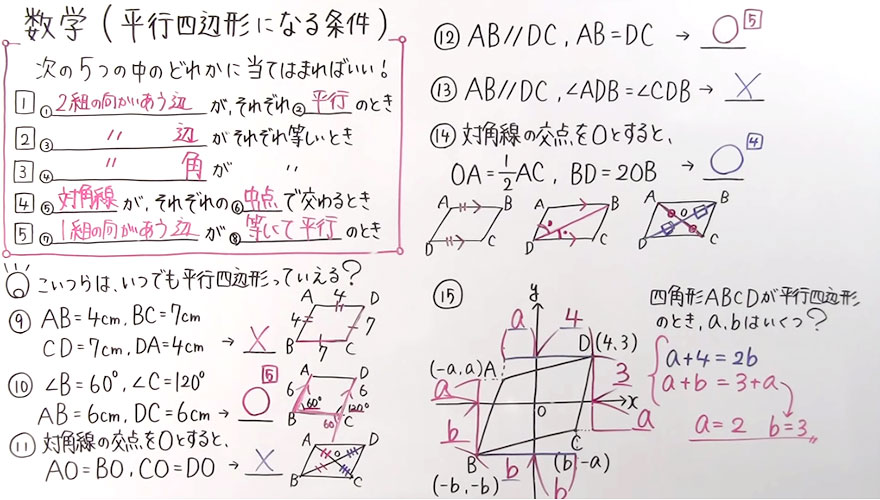 数学(平行四辺形になる条件)
次の5つの中のどれかに当てはまればいい!
1 ①2組の向かいあう辺が、それぞれ②平行のとき
2 ③〃 辺がそれぞれ等しいとき
3 ④〃 角が 〃
4 ⑤対角線が、それぞれの⑥中点で交わるとき
5 ⑦1組の向かいあう辺が⑧等しくて平行のとき
こいつらは、いつでも平行四辺形っていえる?
⑨ AB=4cm, BC=7cm
CD=7cm, DA=4cm → ×
A 4 D
4 7
B 7 C
⑩ ∠B=60°, ∠C=120°
AB=6cm, DC=6cm → ○ 5
A D
6 6
60° 120°
B C
60°
⑪ 対角線の交点をOとすると、
AO=BO, CO=DO → ×
A D
O
B C
⑫ AB//DC, AB=DC → ○ 5
⑬ AB//DC, ∠ADB=∠CDB → ×
⑭ 対角線の交点をOとすると、
OA=1/2AC, BD=2OB → ○ 4
A B
D C
A B
D C
A B
O
D C
⑮
四角形ABCDが平行四辺形
のとき、a,bはいくつ?
a+4=2b
a+b=3+a
a=2 b=3
y
a 4
D(4,3)
(-a,a)A
a 3
O x
b a
C
B b (b,-a)
(-b,-b) b